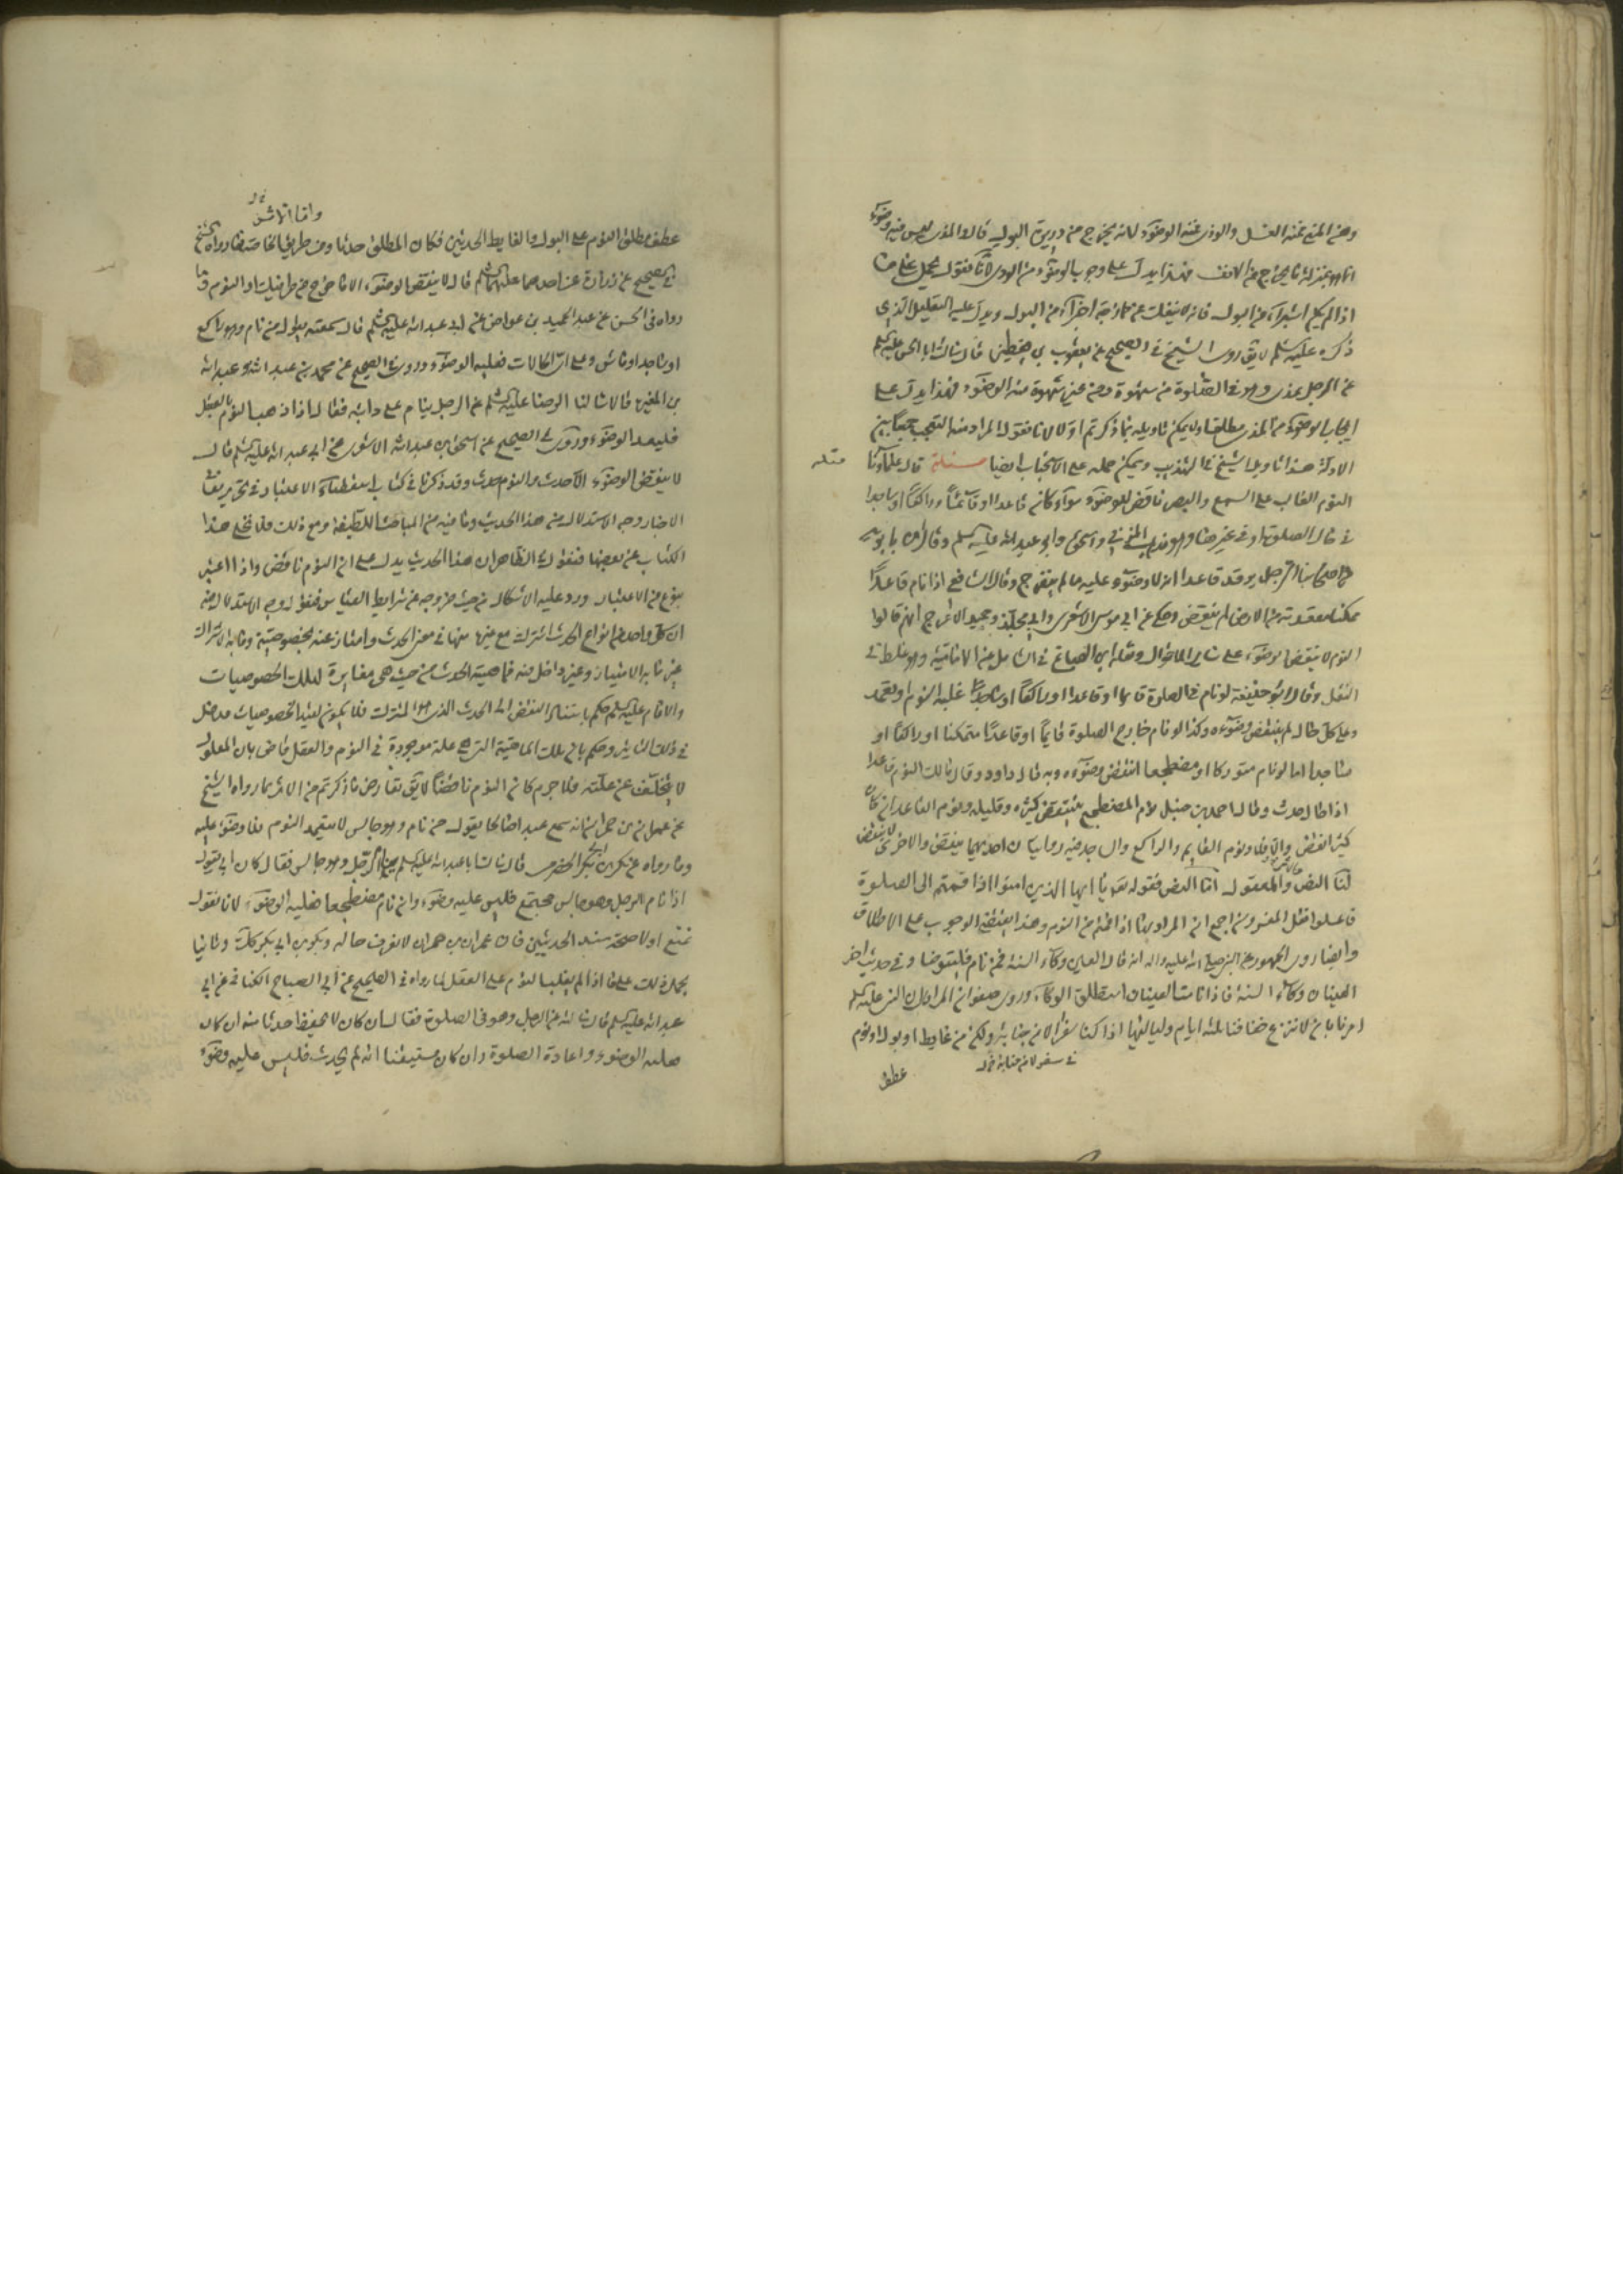 ومن المنى فمنه الغسل والودى فمنه الوضوء لانه يخرج من دريرة البول قال والمذى ليس فيه وضوء
انما هو بمنزلة ما يخرج من الانف فهذا يدل على وجوب الوضوء من الودى لانا نقول يحمل على من
اذا لم يكن استبرأ من البول فانه لا ينفك عن ممازجة اجزاء من البول ويدل عليه التعليل الذى
ذكره عليه السلم لا يق روى الشيخ فى الصحيح عن يعقوب بن يقطين قال سالت ابا الحسن عليه السلم
عن الرجل يمذى وهو فى الصلوة من شهوة ومن غير شهوة منه الوضوء فهذا يدل على
ايجاب الوضوء من المذى مطلقا ولا يمكن تاويله بما ذكرتم اولا لانا نقول المراد منه التعجب جمعا بين
الادلة هذا تاويل الشيخ فى التهذيب ويمكن حمله على الاستحباب ايضا مسئلة قال علماؤنا
مسئله
النوم الغالب على السمع والبصر ناقض للوضوء سواء كان قاعدا او قائما او راكعا او ساجدا
فى حال الصلوة او فى غيرها وهو مذهب المزنى واسحق وابى عبيد الله عليه السلم وقال ابن بابويه
الرجل يرقد قاعدا انه لا وضوء عليه ما لم ينفرج وقال الشافعى اذا نام قاعدا
ممكنا مقعدته من الارض لم ينقض وحكى عن ابى موسى الاشعرى وابى مجلز وحميد الاعرج انهم قالوا
النوم لا ينقض الوضوء على سائر الاحوال ونقله ابن الصباغ فى الشامل عن الامامية وهو غلط فى
النقل وقال ابو حنيفة لو نام فى الصلوة قايما او قاعدا او راكعا او ساجدا غلبه النوم او تعمد
وعلى كل حال لم ينقض وضوءه وكذا لو نام خارج الصلوة قايما او قاعدا متمكنا او راكعا او
ساجدا اما لو نام متوركا او مضطجعا انتقض وضوءه وبه قال داود وقال مالك النوم قاعدا
اذا طال حدث وقال احمد بن حنبل نوم المضطجع ينتقض كثيره وقليله ونوم القاعد ان كان
كثيرا نقض والا فلا ونوم القايم والراكع والساجد فيه روايتان احديهما ينقض والاخرى لا ينقض
لنا النص والاثر والمعقول اما النص فقوله تعه يا ايها الذين امنوا اذا قمتم الى الصلوة
فاغسلوا نقل المفسرون اجمع ان المراد بها اذا قمتم من النوم وهذا يقتضى الوجوب على الاطلاق
وايضا روى الجمهور عن النبى صلى الله عليه واله انه قال العين وكاء السه فمن نام فليتوضا وفى حديث اخر
العينان وكاء السه فاذا نامت العينان استطلق الوكاء وروى صفوان المرادى ان النبى عليه السلم
امرنا بان لا ننزع خفافنا ثلثه ايام ولياليها اذا كنا سفرا الا من جنابة ولكن من غايط او بول او نوم
فى سفر لا من جنابة
عطف
واما الاثر
عطف مطلق النوم على البول والغايط الحدثين فكان المطلق حدثا ومن طريق الخاصة فما رواه الشيخ
فى الصحيح عن زرارة عن احدهما عليهما السلم قال لا ينقض الوضوء الا ما خرج من طرفيك او النوم وما
رواه فى الحسن عن عبد الحميد بن عواض عن ابى عبد الله عليه السلم قال سمعته يقول من نام وهو راكع
او ساجد او ماش وعلى اى الحالات فعليه الوضوء وروى فى الصحيح عن محمد بن عبد الله وعبد الله
بن المغيرة قالا سالنا الرضا عليه السلم عن الرجل ينام على دابته فقال اذا ذهب النوم بالعقل
فليعد الوضوء وروى فى الصحيح عن اسحق بن عبد الله الاشعرى عن ابى عبد الله عليه السلم قال
لا ينقض الوضوء الا حدث والنوم حدث وقد ذكرنا فى كتاب استقصاء الاعتبار فى تحرير معانى
الاخبار وجه الاستدلال من هذا الحديث وما فيه من المباحث اللطيفة ومع ذلك فلا نخلى هذا
الكتاب عن بعضها فنقول الظاهر ان هذا الحديث يدل على ان النوم ناقض واذا اعتبر
بنوع من الاعتبار ورد عليه الاشكال من حيث خروجه عن شرايط القياس فنقول وجه الاستدلال منه
ان كل واحد من انواع الحدث اشترك مع غيرها منها فى معنى الحدث وامتاز عنه بخصوصية وما به الاشتراك
غير ما به الامتياز وغير داخل فيه فماهية الحدث من حيث هى مغايرة لتلك الخصوصيات
والامام عليه السلم حكم باستناد النقض الى الحدث الذى هو المشترك فلا يكون لقيد الخصوصيات مدخل
فى ذلك التاثير وحكم بان تلك الماهية التى هى علة موجودة فى النوم والعقل قاض بان المعلول
لا يتخلف عن علته فلا جرم كان النوم ناقضا لا يق تعارض ما ذكرتم من الاثر بما رواه الشيخ
عن عمران بن حمران انه سمع عبدا صالحا يقول من نام وهو جالس لا يتعمد النوم فلا وضوء عليه
وما رواه عن بكر بن ابى بكر الحضرمى قال سالت ابا عبد الله عليه السلم هل ينام الرجل وهو جالس فقال كان ابى يقول
اذا نام الرجل وهو جالس مجتمع فليس عليه وضوء وان نام مضطجعا فعليه الوضوء لانا نقول
نمنع اولا صحة سند الحديثين فان عمران بن حمران لا نعرف حاله وبكر بن ابى بكر كذلك وثانيا
نحمل ذلك على ما اذا لم يغلب النوم على العقل لما رواه فى الصحيح عن ابى الصباح الكنانى عن ابى
عبد الله عليه السلم قال سالته عن الرجل وهو فى الصلوة فقال ان كان لا يحفظ حدثا منه ان كان
فعليه الوضوء واعادة الصلوة وان كان مستيقنا انه لم يحدث فليس عليه وضوء